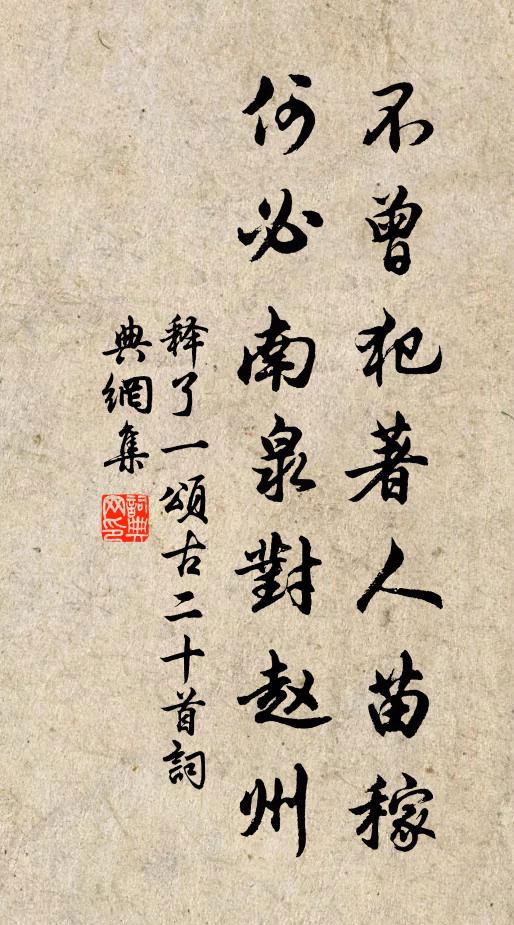 不曾犯著人苗稼
何必南泉對趙州
释了一頌古二十首詞
典網集
詞典網印